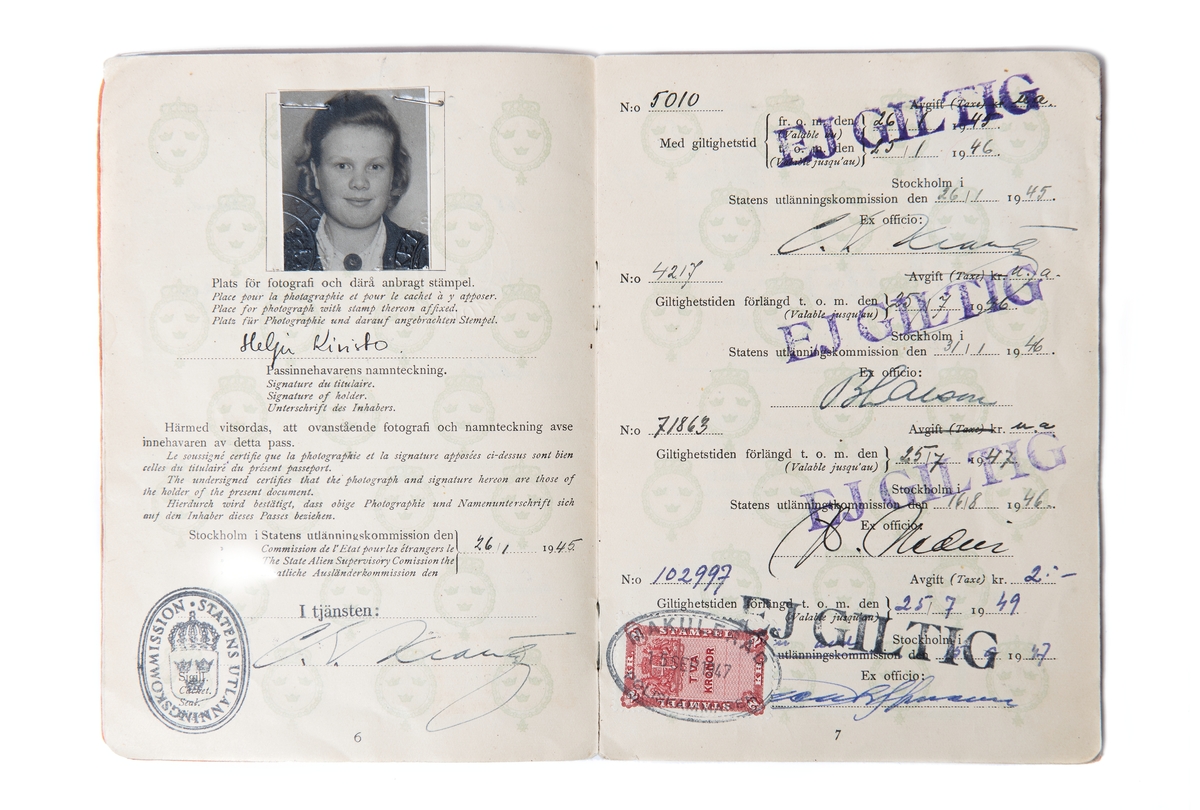 Plats för fotografi och därå anbragt stämpel.
Place pour la photagraphie et pour le cachet à y apposer.
Place for photograph with stamp thereon affixed.
Platz für Photographie und darauf angebrachten Stempel.
Helju Kivisto.
Passinnehavarens namnteckning.
Signature du titulaire.
Signature of holder.
Unterschrift des Inhabers.
Härmed vitsordas, att ovanstående fotografi och namnteckning avse
innehavaren av detta pass.
Le soussigné certifie que la photographie et la signature apposées ci-dessus sont bien
celles du titulaire du présent passeport.
The undersigned certifies that the photograph and signature hereon are those of
the holder of the present document.
Hierdurch wird bestätigt, dass obige Photographie und Namenunterschrift sich
auf den Inhaber dieses Passes beziehen.
Stockholm i Statens utlänningskommission den
Commission de l'Etat pour les étrangers le
The State Alien Supervisory Comission the
Ausländerkommission den
26/1 1945
I tjänsten:
STATENS UTLÄNNINGSKOMMISSION
Sigill.
Cachet.
6
N:o 5010 Avgift (Taxe) kr.
Med giltighetstid fr. o. m. den 26
(Valable du)
t. o. m. den 25/1 1946.
(Valable jusqu'au)
EJ GILTIG
Stockholm i
Statens utlänningskommission den 26/1 1945.
Ex officio:
N:o 4217 Avgift (Taxe) kr. u.a.
Giltighetstiden förlängd t. o. m. den 25/7 1946
(Valable jusqu'au)
EJ GILTIG
Stockholm i
Statens utlänningskommission den 31/1 1946.
Ex officio:
N:o 71863 Avgift (Taxe) kr. u.a
Giltighetstiden förlängd t. o. m. den 25/7 1947
(Valable jusqu'au)
EJ GILTIG
Stockholm i
Statens utlänningskommission den 16/8 1946.
Ex officio:
N:o 102997 Avgift (Taxe) kr. 2:-
Giltighetstiden förlängd t. o. m. den 25/7 1949
(Valable jusqu'au)
EJ GILTIG
Stockholm i
utlänningskommission den 1947
Ex officio:
MAKULERAD
STÄMPEL
TVÅ
KRONOR
STÄMPEL
7